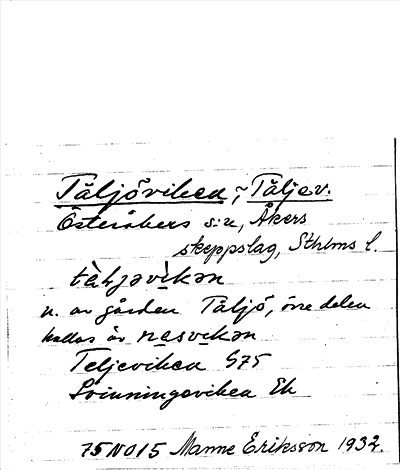 Täljöviken, ~ Täljev.
Österåkers s:n, Åkers
skeppslag, Sthlms l.
tàljəvìkən
n. av gården Täljö, övre delen
kallas är näsvikən
Teljeviken G75
Svinningeviken Ek
75N015 Manne Eriksson 1932.